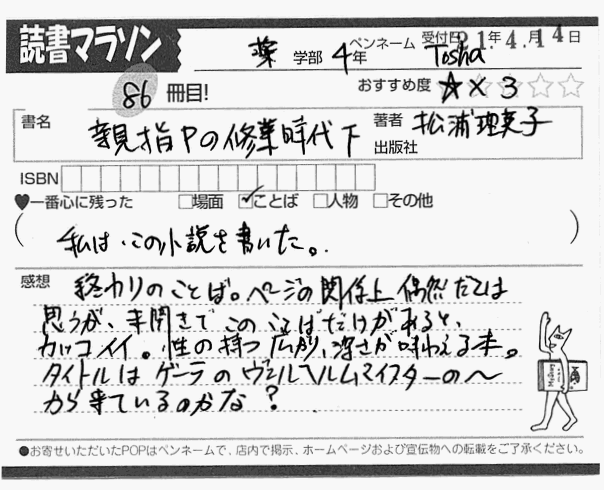 読書マラソン
薬 学部 4年 ペンネーム Tosha 受付日 21年 4月14日
86 冊目! おすすめ度 ★×3 ☆☆
書名 親指Pの修業時代 下 著者 松浦理英子
出版社
ISBN
♥一番心に残った □場面 ☑ことば □人物 □その他
(私は、この小説を書いた。)
感想 終わりのことば。ページの関係上 偶然だとは
思うが、半開きで このことばだけがあると、
カッコイイ。性の持つ 広がり、深さが味わえる本。
タイトルは ゲーテの ヴィルヘルムマイスターの〜
から来ているのかな?
●お寄せいただいたPOPはペンネームで、店内で掲示、ホームページおよび宣伝物への転載をご了承ください。